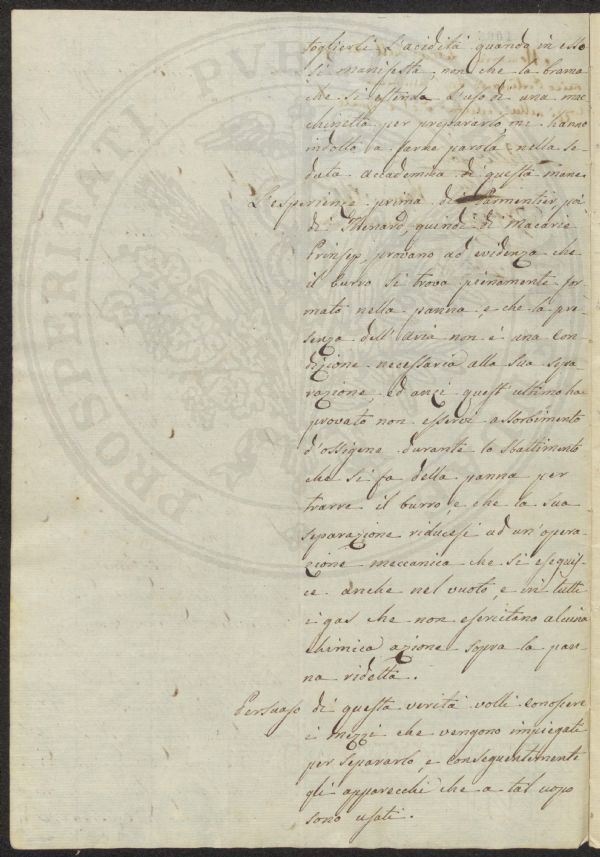 togliersi l'acidità quando in esso
si manifesta, non che la brama
che si estenda l'uso di una mac
chinetta per prepararlo, mi hanno
indotto a farne parola nella se
duta accademica di questa mane.
L'esperienze prima di Parmentier, poi
di Thenard, quindi di Macarie
Prinsep, provano ad evidenza che
il burro si trova pienamente for
mato nella panna, e che la pre
senza dell'aria non è una con
dizione necessaria alla sua sepa
razione, ed anzi quest'ultimo ha
provato non esservi assorbimento
d'ossigene durante lo sbattimento
che si fa della panna per
trarre il burro, e che la sua
separazione riducesi ad un'opera
zione meccanica che si eseguis
ce anche nel vuoto, e in tutti
i gas che non esercitano alcuna
chimica azione sopra la pan
na ridetta.
Persuaso di questa verità volli conoscere
i mezzi che vengono impiegati
per separarlo, e conseguentemente
gli apparecchi che a tal uopo
sono usati.
PROSPERITATI PVB